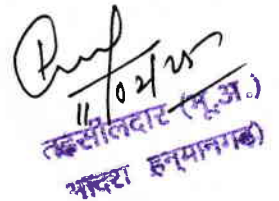 11/02/25
तहसीलदार (भू.अ.)
भादरा (हनुमानगढ़)